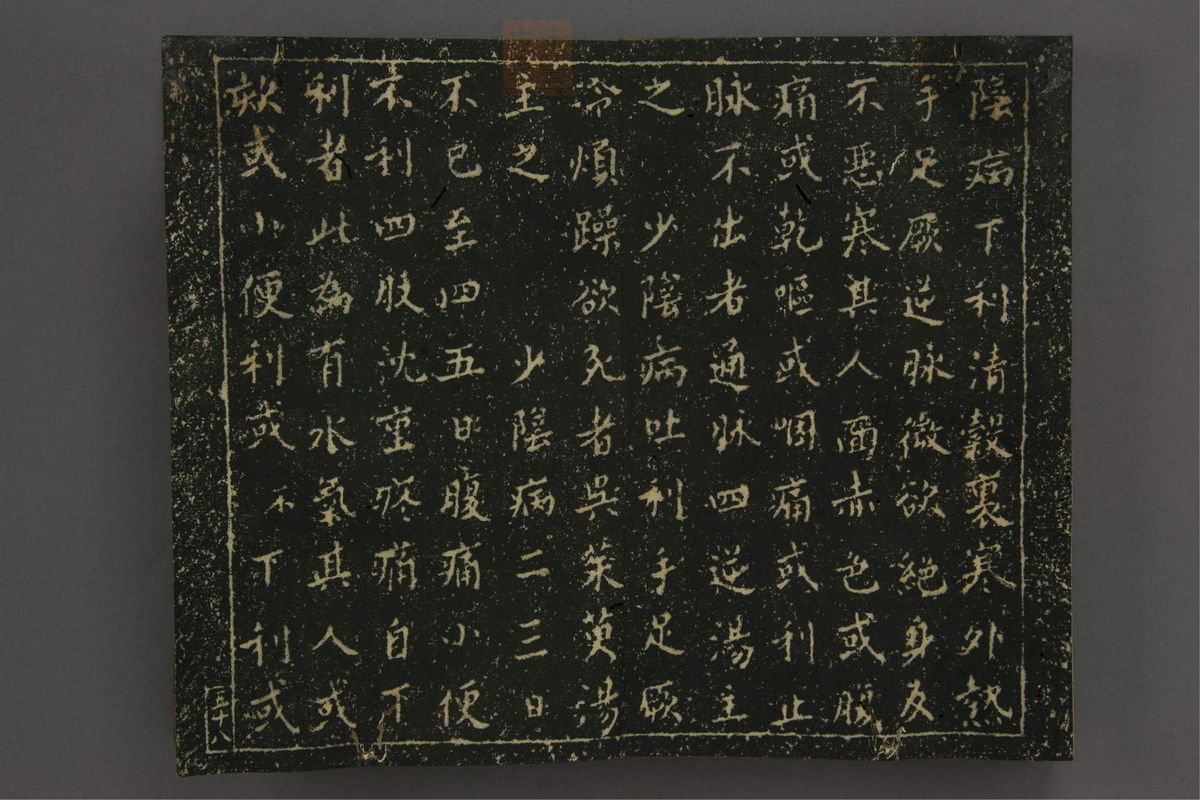 陰病下利清穀裏寒外熱
手足厥逆脉微欲絕身反
不惡寒其人面赤色或腹
痛或乾嘔或咽痛或利止
脉不出者通脉四逆湯主
之 少陰病吐利手足厥
冷煩躁欲死者吳茱萸湯
主之 少陰病二三日
不已至四五日腹痛小便
不利四肢沈重疼痛自下
利者此為有水氣其人或
欬或小便利或不下利或